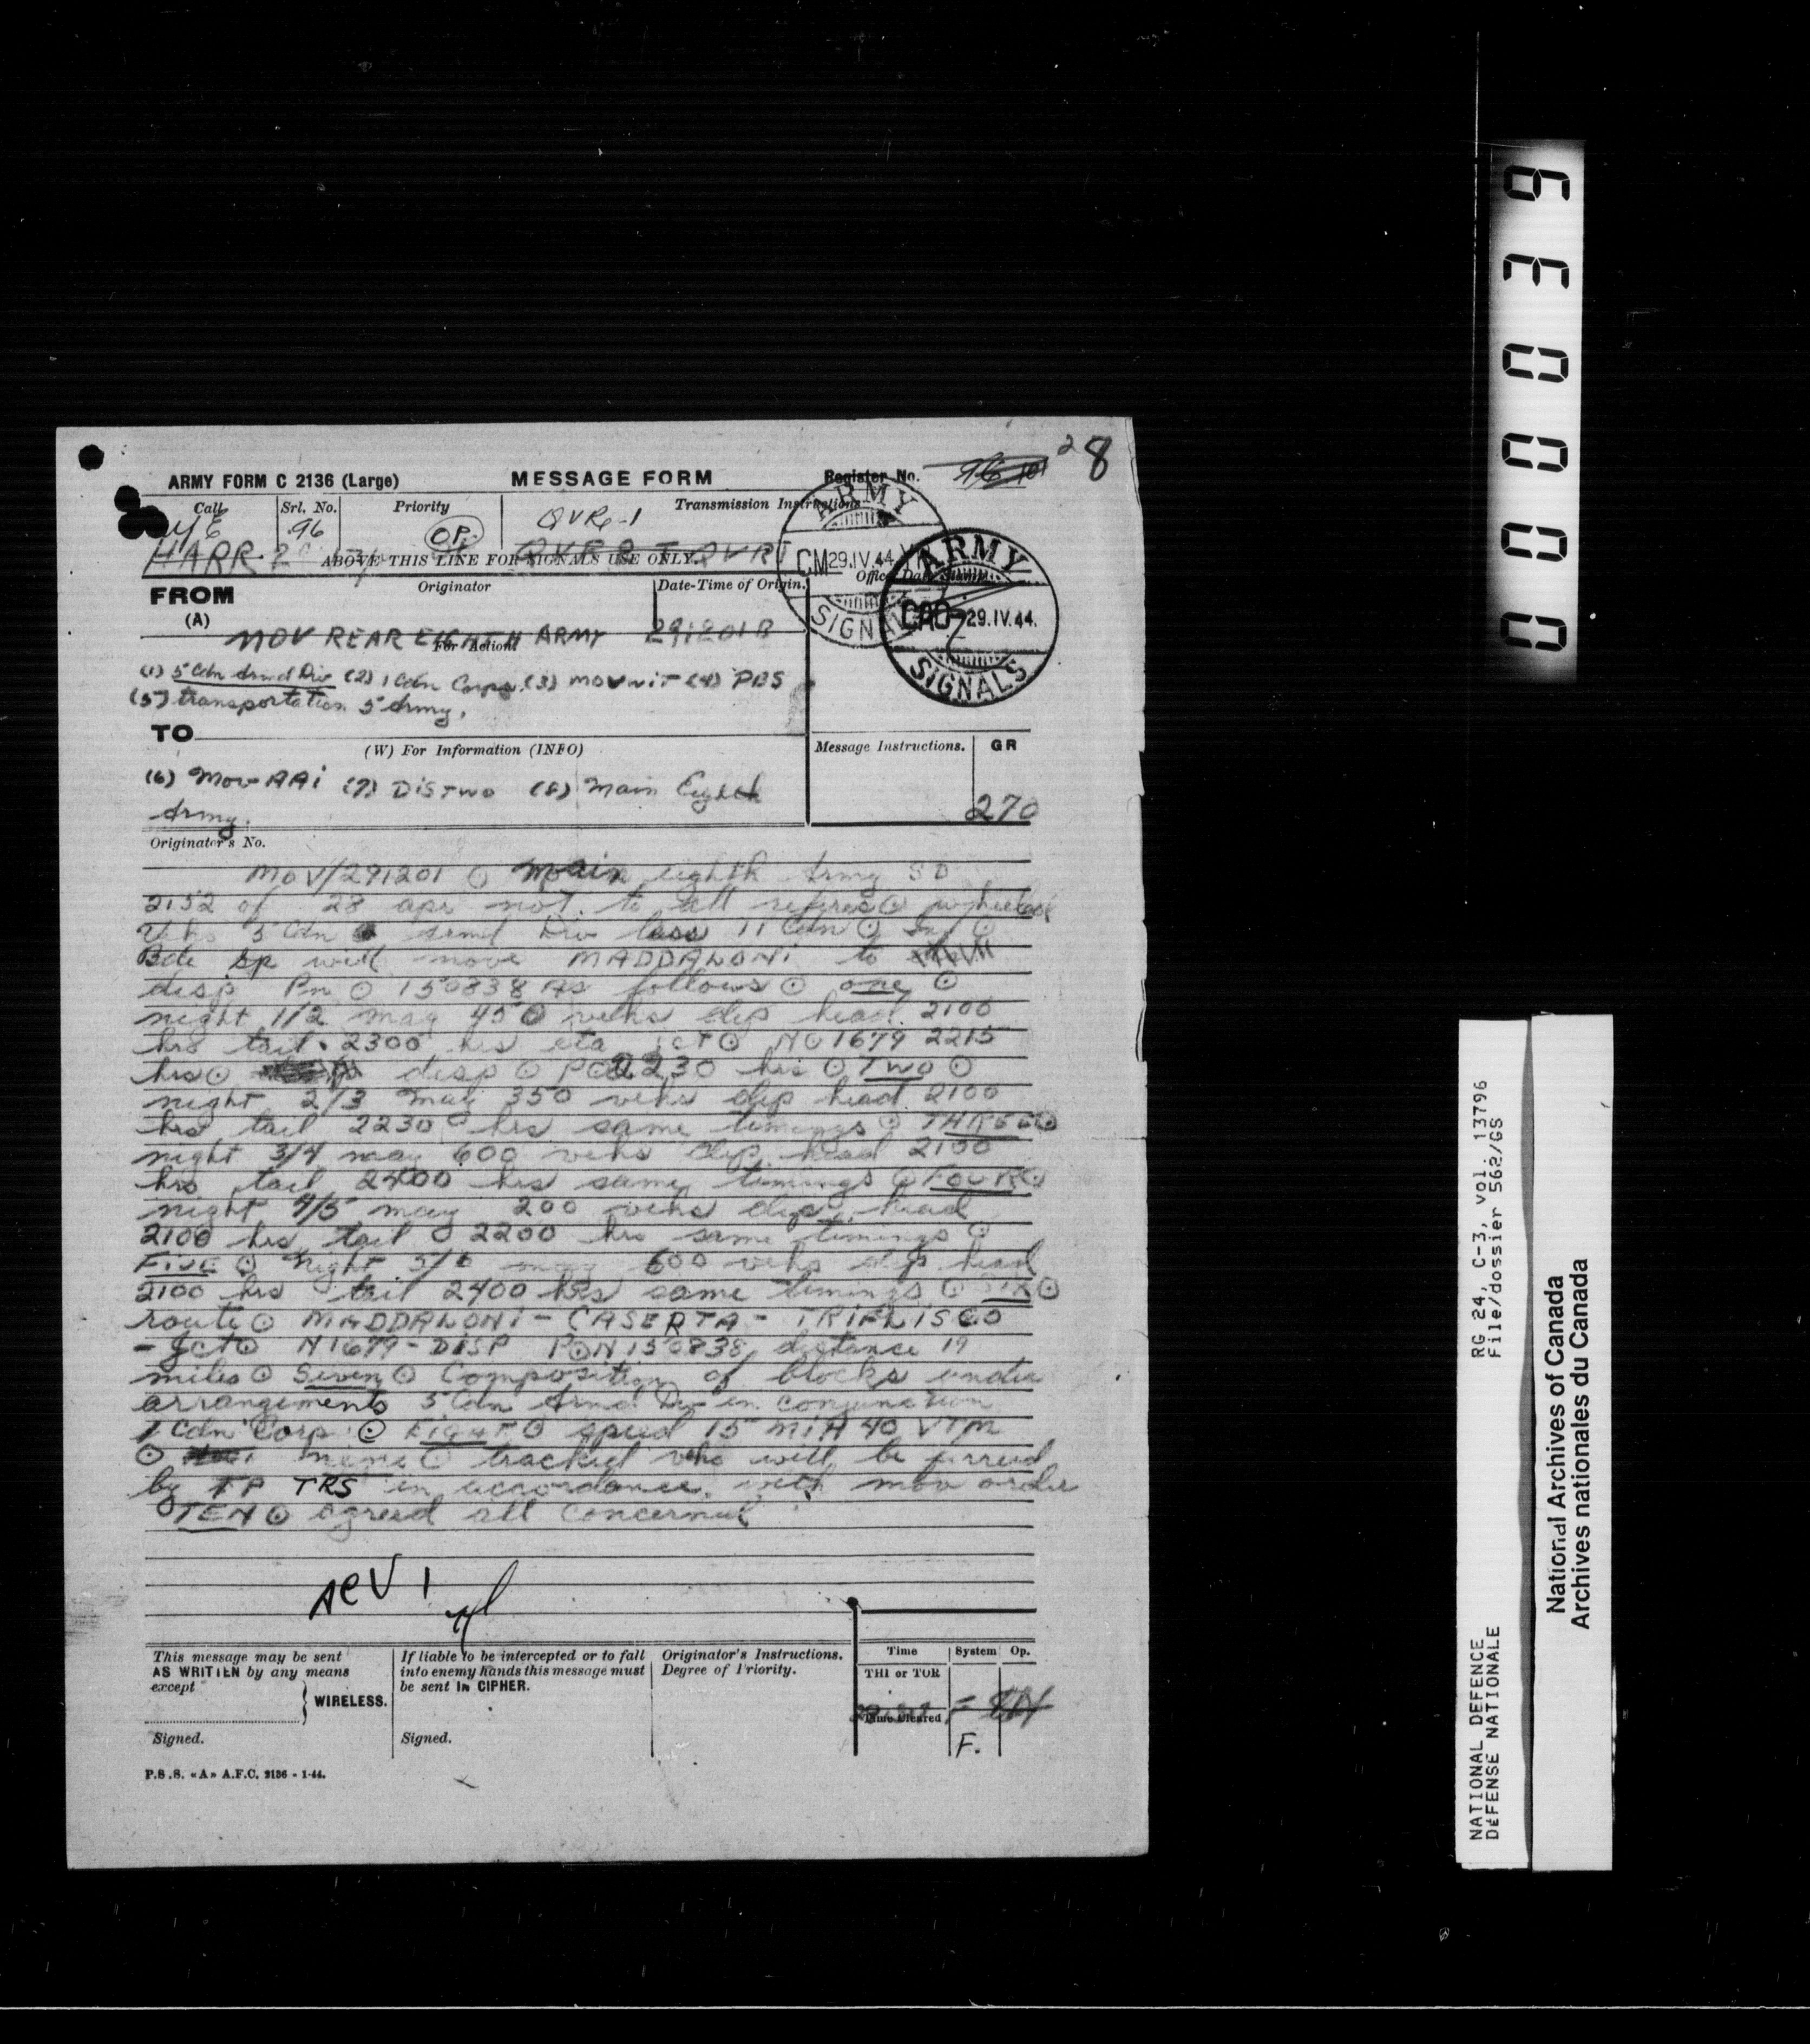 28
ARMY FORM C 2136 (Large) MESSAGE FORM Register No.
Call Srl. No. Priority Transmission Instructions
96 OP QVR-1
HARR 2 ABOVE THIS LINE FOR SIGNALS USE ONLY.
ARMY
CM 29.IV.44
SIGNALS
Office Date Stamp
ARMY
CAO 29.IV.44.
SIGNALS
FROM Originator Date-Time of Origin.
(A) MOV REAR EIGHTH ARMY 291201B
For Action
(1) 5 Cdn Armd Div (2) 1 Cdn Corps (3) MOVNIT (4) PBS
(5) transportation 5 Army.
TO
(W) For Information (INFO) Message Instructions. GR
(6) Mov AAI (7) DISTWO (8) Main Eighth
Army. 270
Originator's No.
MOV/291201 ⊙ Main eighth Army SD
2152 of 28 apr not to all refers ⊙ wheeled
Vehs 5 Cdn Armd Div less 11 Cdn ⊙ Inf ⊙
Bde Gp will move MADDALONI to
disp Pn ⊙ 150838 as follows ⊙ one ⊙
night 1/2 may 450 vehs dep head 2100
hrs tail 2300 hrs eta jct ⊙ N 1679 2215
hrs ⊙ disp ⊙ P 2230 hrs ⊙ Two ⊙
night 2/3 may 350 vehs dep head 2100
hrs tail 2230 hrs same timings ⊙ THREE ⊙
night 3/4 may 600 vehs dep head 2100
hrs tail 2400 hrs same timings ⊙ FOUR ⊙
night 4/5 may 200 vehs dep head
2100 hrs tail 2200 hrs same timings ⊙
Five ⊙ night 5/6 may 600 vehs dep head
2100 hrs tail 2400 hrs same timings ⊙ SIX ⊙
route ⊙ MADDALONI - CASERTA - TRIFLISCO
- Jct ⊙ N1679 - DISP PON 150838 distance 19
miles ⊙ Seven ⊙ Composition of blocks under
arrangements 5 Cdn Armd Div in conjunction
1 Cdn Corp ⊙ EIGHT ⊙ speed 15 MIH 40 VTM
⊙ nine ⊙ tracked vehs will be ferried
by TP TRS in accordance with mov order
TEN ⊙ agreed all concerned
This message may be sent
AS WRITTEN by any means
except
WIRELESS.
Signed.
If liable to be intercepted or to fall
into enemy hands this message must
be sent IN CIPHER.
Signed.
Originator's Instructions.
Degree of Priority.
Time System Op.
THI or TOR
Time Cleared
F.
P.S.S. «A» A.F.C. 2136 - 1-44.
000039
RG 24, C-3, vol. 13796
File/dossier 562/GS
NATIONAL DEFENCE
DÉFENSE NATIONALE
National Archives of Canada
Archives nationales du Canada